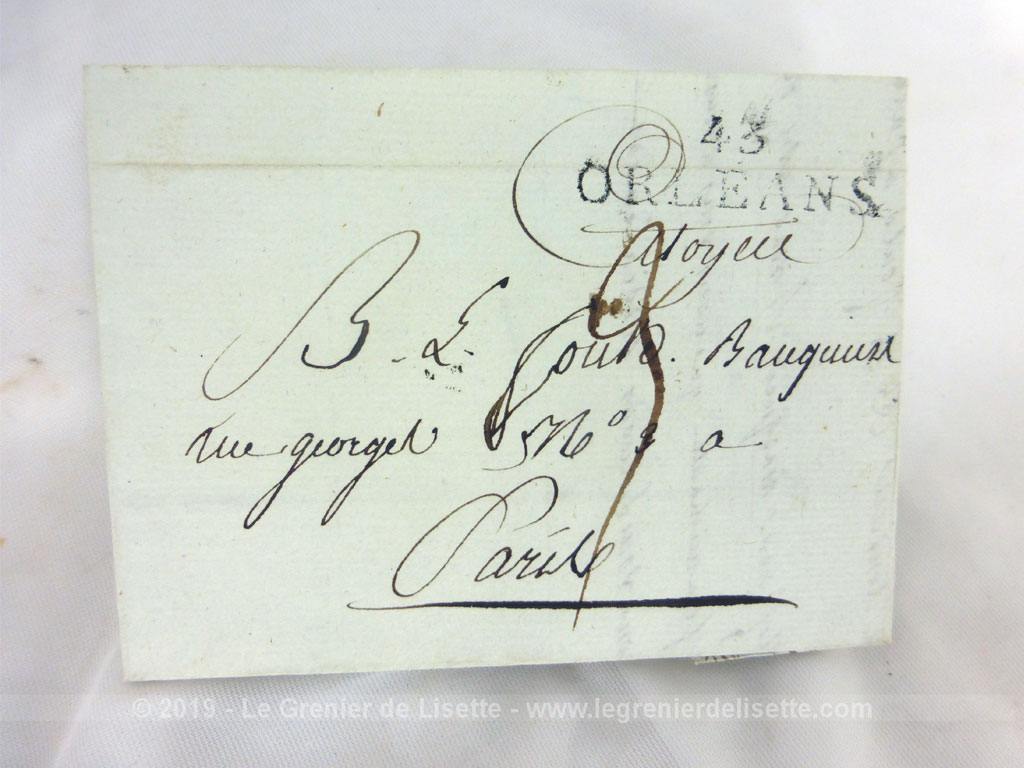 43
ORLEANS
Citoyen
B. L. Fould. Banquier
rue george N° 3 a
Paris
© 2019 - Le Grenier de Lisette - www.legrenierdelisette.com